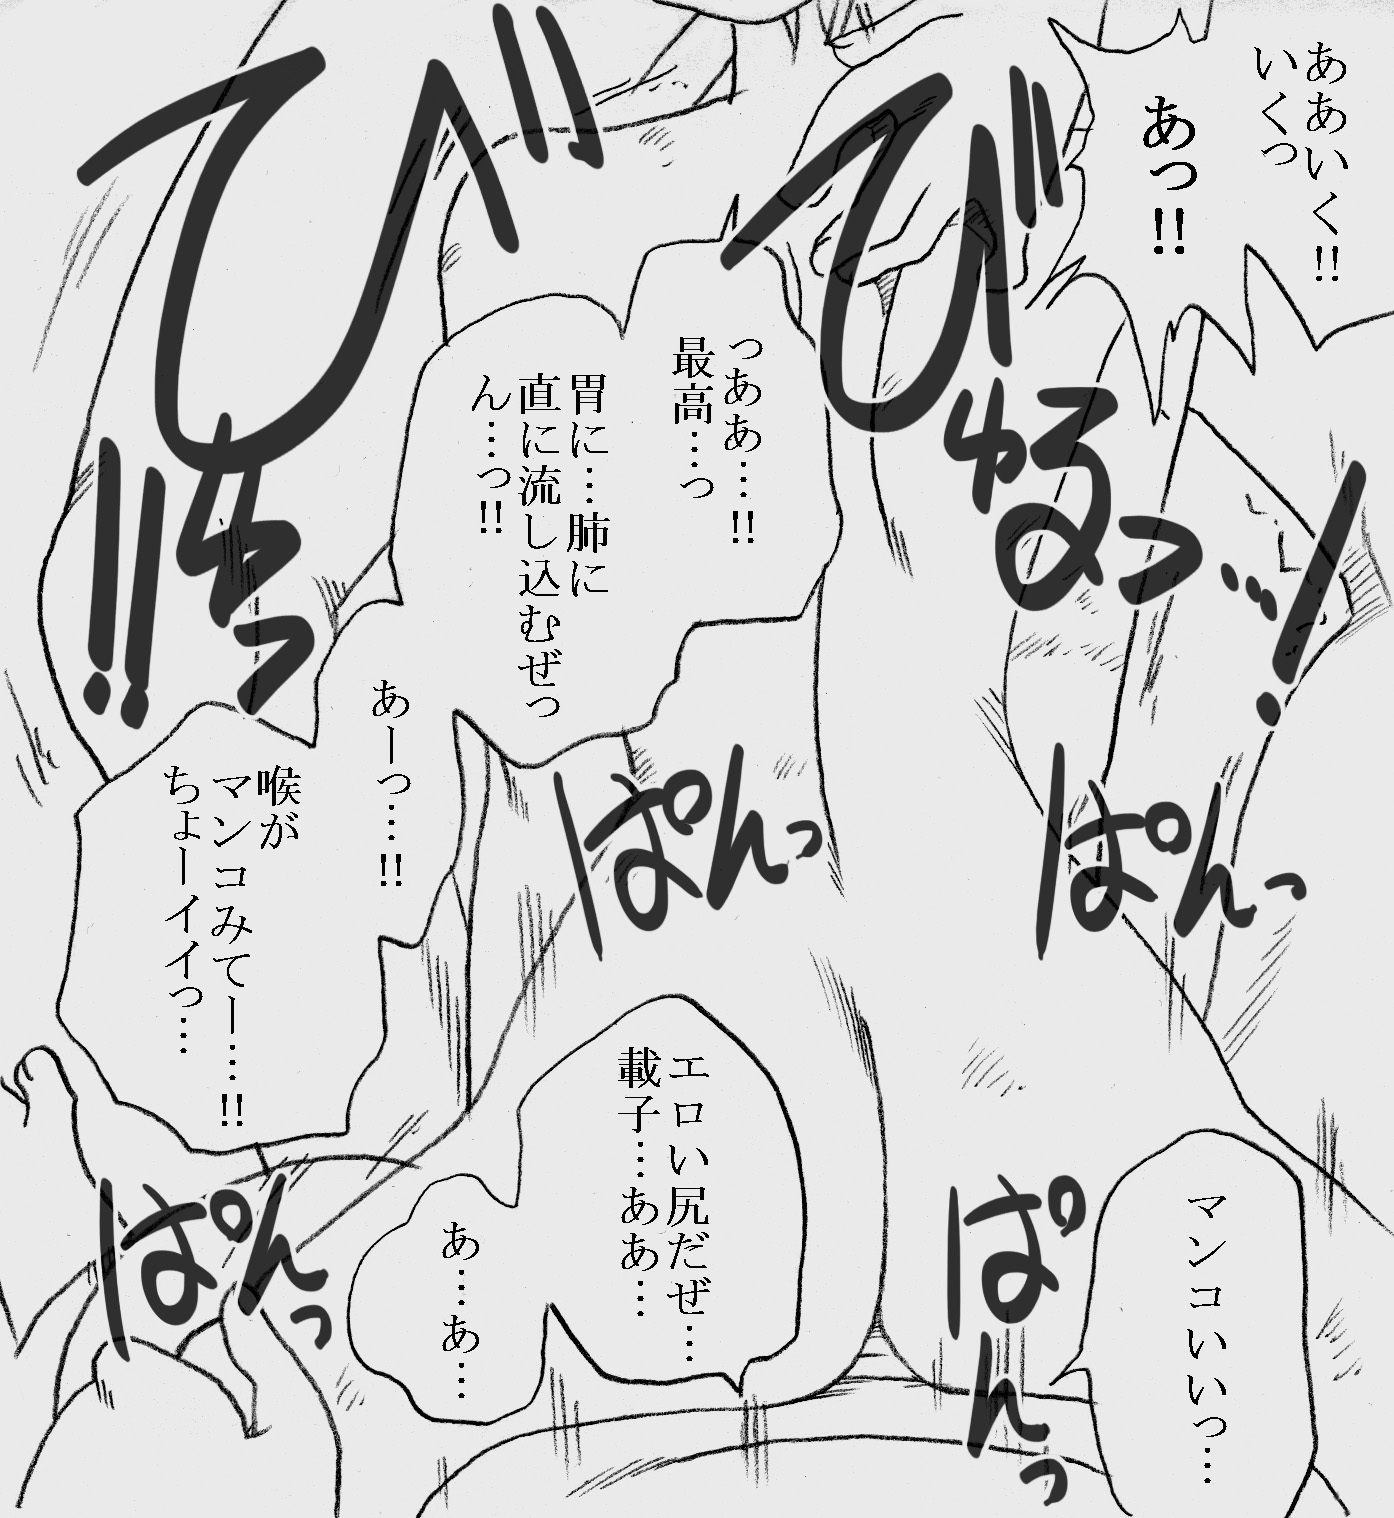 ああいく!!
いくっ
あっ!!
びゅるっ…!
び!!
っああ…!!
最高…っ
胃に…肺に
直に流し込むぜっ
ん…っ!!
び!!
ちっ!!
あーっ…!!
喉が
マンコみてー…!!
ちょーイイっ…
ぱんっ
ぱんっ
マンコいいっ…
ぱんっ
エロい尻だぜ…
載子…ああ…
あ…あ…
ぱんっ